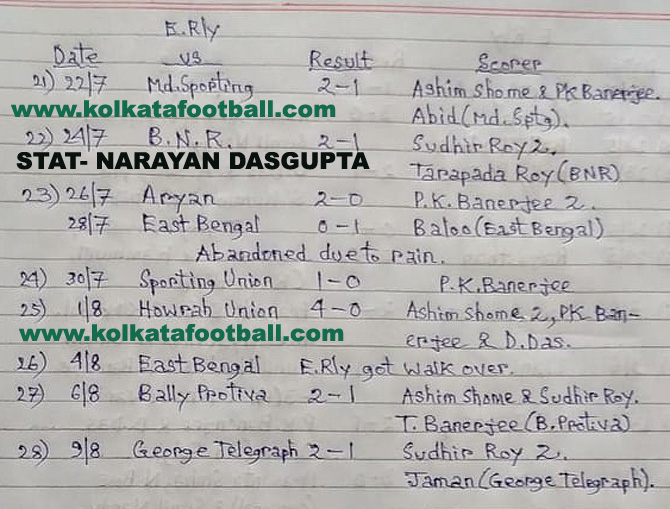 E.Rly
Date vs Result Scorer
21) 22/7 Md.Sporting 2-1 Ashim Shome & PK Banerjee.
www.kolkatafootball.com Abid (Md. Sptg).
22) 24/7 B.N.R. 2-1 Sudhir Roy 2,
STAT- NARAYAN DASGUPTA Tarapada Roy (BNR)
23) 26/7 Aryan 2-0 P.K. Banerjee 2.
28/7 East Bengal 0-1 Baloo (East Bengal)
Abandoned due to rain.
24) 30/7 Sporting Union 1-0 P.K.Banerjee
25) 1/8 Howrah Union 4-0 Ashim Shome 2, PK Ban-
www.kolkatafootball.com erjee & D.Das.
26) 4/8 East Bengal E.Rly got walk over.
27) 6/8 Bally Protiva 2-1 Ashim Shome & Sudhir Roy.
T. Banerjee (B.Protiva)
28) 9/8 George Telegraph 2-1 Sudhir Roy 2.
Jaman (George Telegraph).